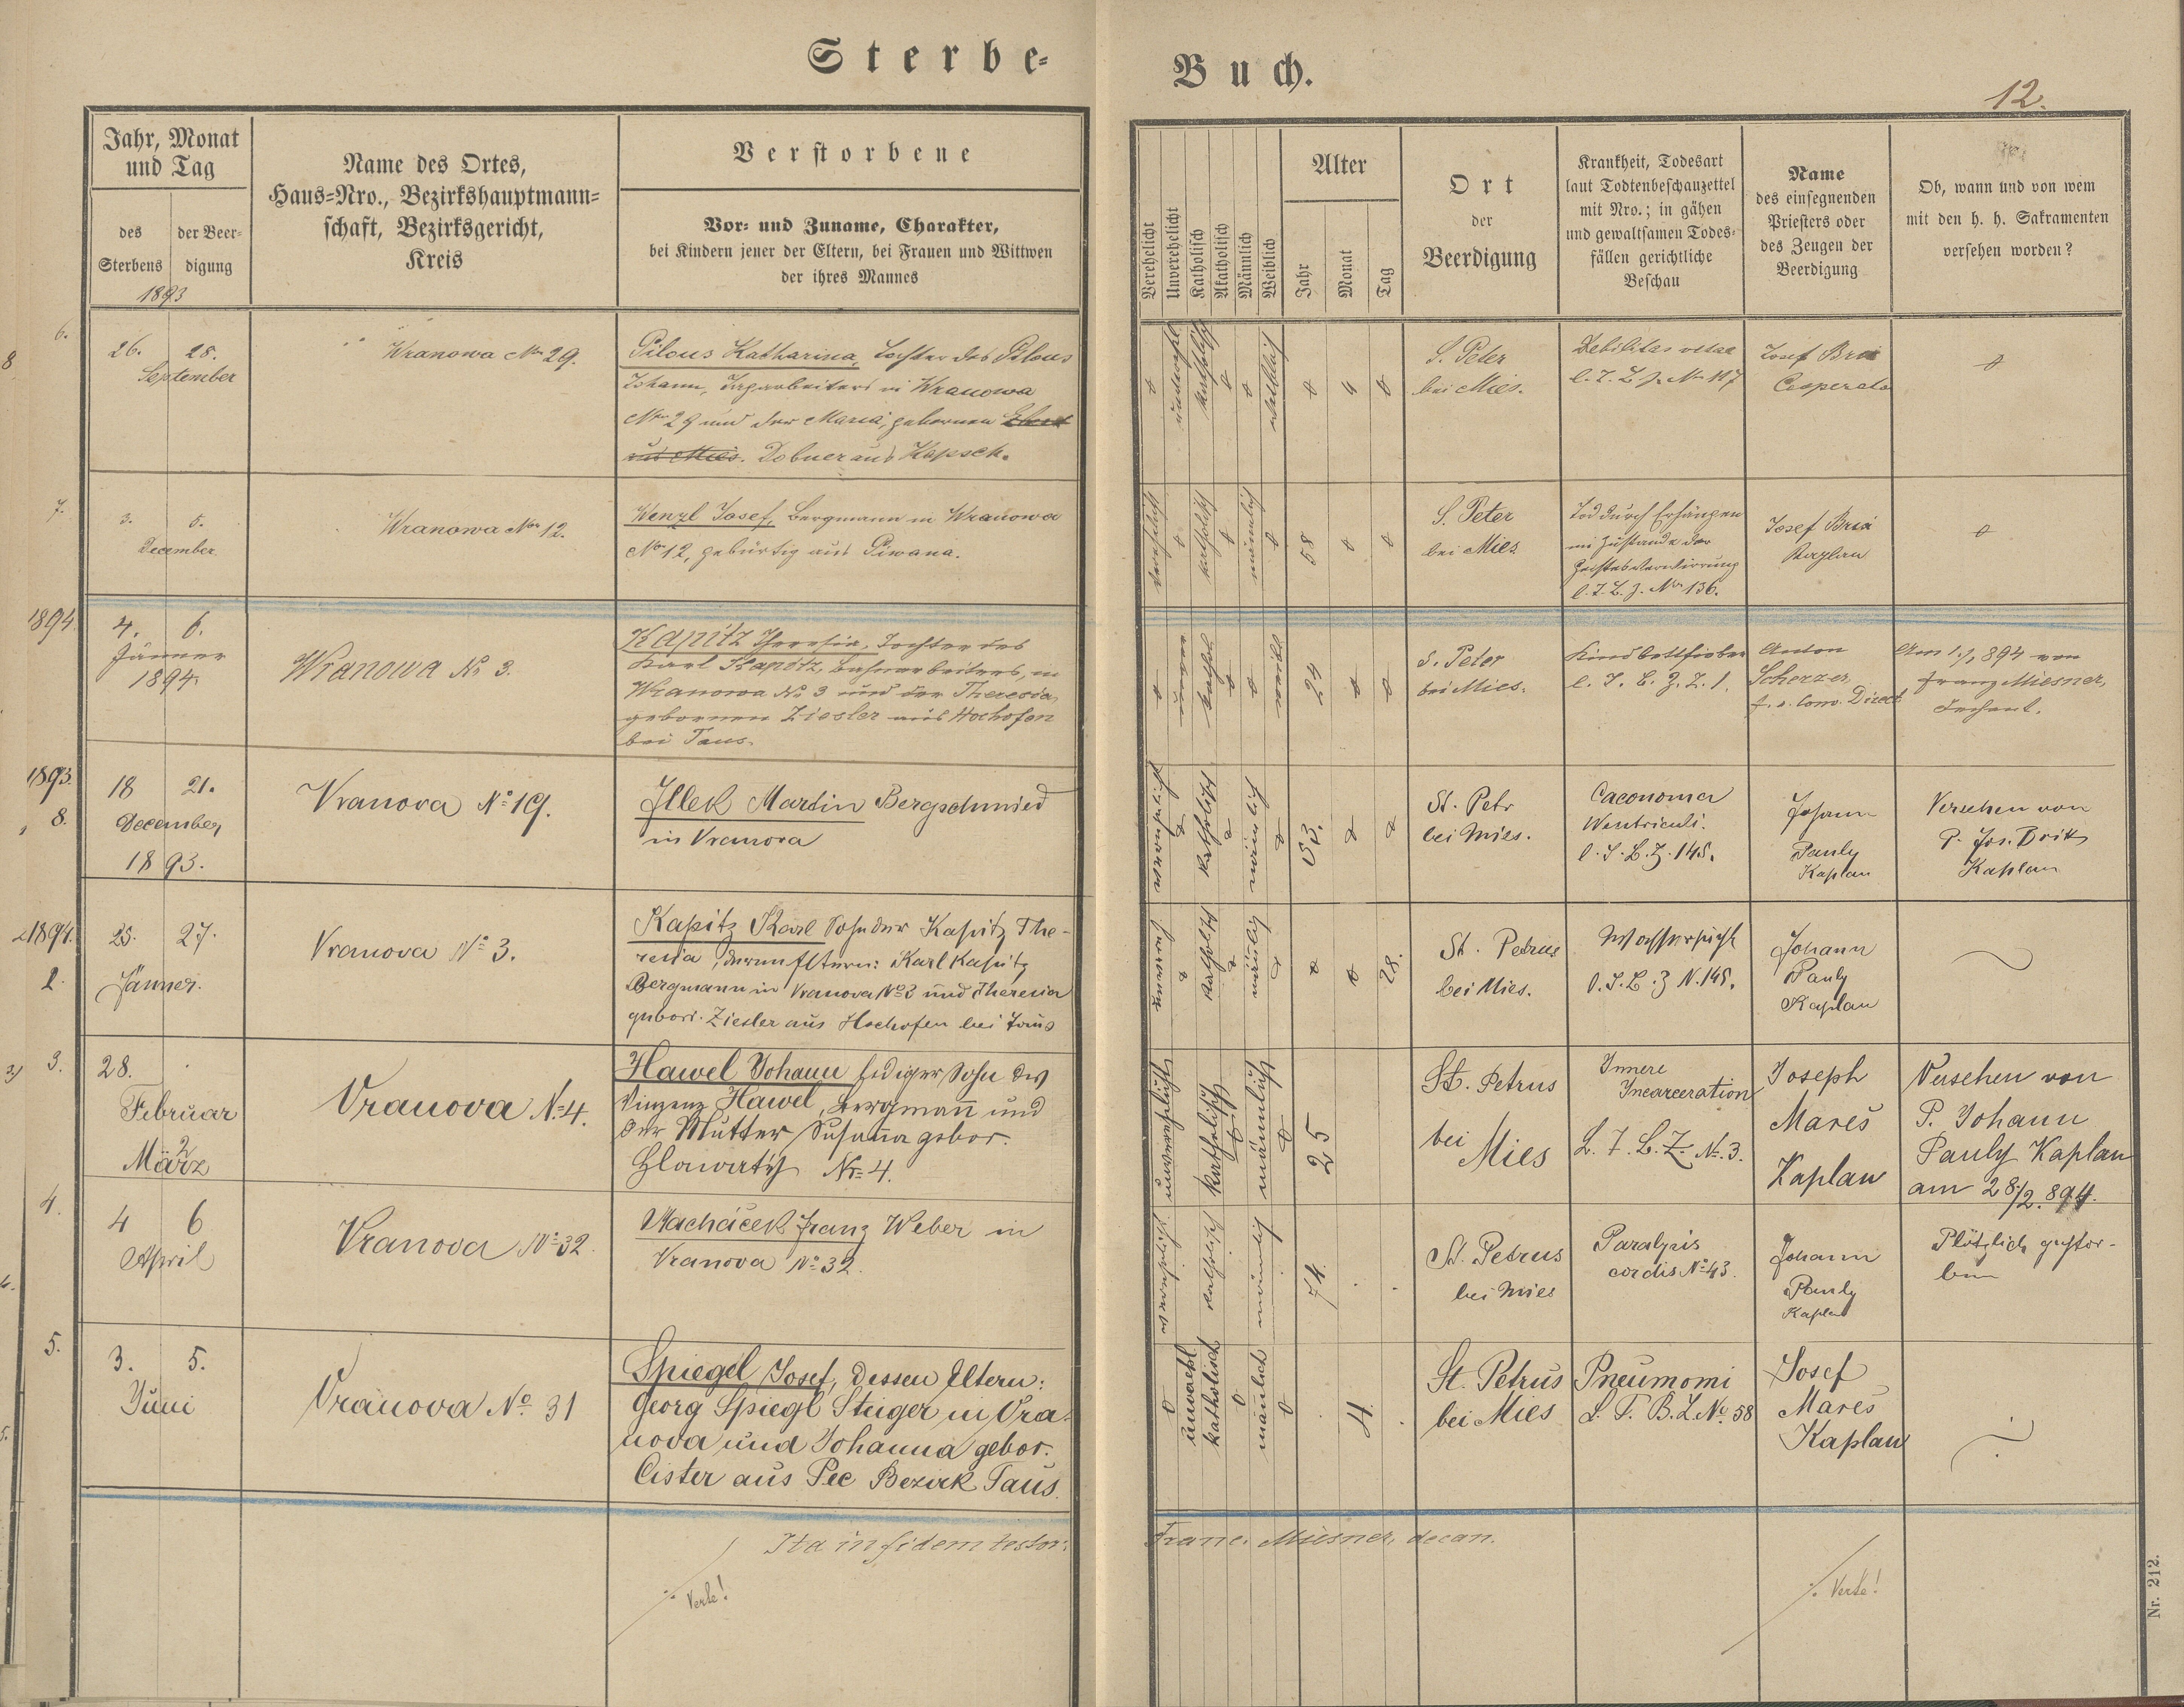 Sterbe-
Buch.
12.
Jahr, Monat
und Tag
des
Sterbens
der Beer-
digung
1893
Name des Ortes,
Haus-Nro., Bezirkshauptmann-
schaft, Bezirksgericht,
Kreis
Verstorbene
Vor- und Zuname, Charakter,
bei Kindern jener der Eltern, bei Frauen und Wittwen
der ihres Mannes
Verehelicht
Unverehelicht
Katholisch
Akatholisch
Männlich
Weiblich
Alter
Jahr
Monat
Tag
Ort
der
Beerdigung
Krankheit, Todesart
laut Todtenbeschauzettel
mit Nro.; in gähen
und gewaltsamen Todes-
fällen gerichtliche
Beschau
Name
des einsegnenden
Priesters oder
des Zeugen der
Beerdigung
Ob, wann und von wem
mit den h. h. Sakramenten
versehen worden?
6.
8
26. 28.
September
Wranowa No 29.
Pilous Katharina, Tochter des Pilous
Johann, in Wranowa
No 29 und der Maria, gebornen
aus Mies. Dobner aus Kapsch.
katholisch
weiblich
4
S. Peter
bei Mies.
Debilitas vitae
l. T. B. Z. No 117
Josef Brix
Cooperator
7.
3. 5.
December
Wranowa No 12.
Wenzl Josef, Bergmann in Wranowa
No 12, gebürtig aus Piwana.
verehelicht
katholisch
männlich
58
S. Peter
bei Mies
Tod durch Erhängen
im Zustande der
Geistesverwirrung
l. T. B. Z. No 136.
Josef Brix
Kaplan
1894
4. 6.
Jänner
1894.
Wranowa No 3.
Kapitz Theresia, Tochter des
Karl Kapitz, Bahnarbeiters, in
Wranowa No 3 und der Theresia,
gebornen Ziesler aus Hochofen
bei Taus.
unver
kathol
weibl
24
S. Peter
bei Mies.
Kindbettfieber
l. T. B. Z. Z. 1.
Anton
Scherzer
f. e. Conv. Direct
Am 1/1 894 von
Franz Miesner,
Dechant.
1893.
8.
18 21.
December
1893.
Vranova No 19.
Illek Martin Bergschmied
in Vranova
verehelicht
katholisch
männlich
53.
St. Petr
bei Mies.
Caconoma
Wentriculi.
l. T. B. Z. 145.
Johann
Pauly
Kaplan
Versehen von
P. Jos. Brix
Kaplan
1894.
2.
25. 27.
Jänner.
Vranova No 3.
Kapitz Karl Sohn der Kapitz The-
resia, deren Eltern: Karl Kapitz
Bergmann in Vranova No 3 und Theresia
gebor. Ziesler aus Hochofen bei Taus
unvereh.
katholisch
männlich
28.
St. Petrus
bei Mies.
l. T. B. Z N. 145.
Johann
Pauly
Kaplan
3. 3.
28.
Februar
2
März
Vranova No 4.
Hawel Johann lediger Sohn des
Vinzenz Hawel, Bergmann und
der Mutter Susanna gebor.
Hlawatý No 4.
unverehelicht
katholisch
männlich
25
St. Petrus
bei Mies
Innere
Incarceration
L. T. B. Z. No. 3.
Joseph
Mareš
Kaplan
Versehen von
P. Johann
Pauly Kaplan
am 28/2. 894.
4.
4 6
April
Vranova No 32.
Macháček Franz Weber in
Vranova No 32.
verehelicht
katholisch
männlich
74.
St. Petrus
bei Mies
Paralysis
cordis No 43.
Johann
Pauly
Kaplan
Plötzlich gestor-
ben
5.
3. 5.
Juni
Vranova No. 31
Spiegel Josef, dessen Eltern:
Georg Spiegl Steiger in Vra-
nova und Johanna gebor.
Cister aus Pec Bezirk Taus.
unverehl
katholisch
männlich
4.
St. Petrus
bei Mies
Pneumomi
L. T. B. Z. No. 58
Josef
Mareš
Kaplan
Ita in fidem testor:
Franc. Miesner, decan.
./. Verte!
./. Verte!
Nr. 212.